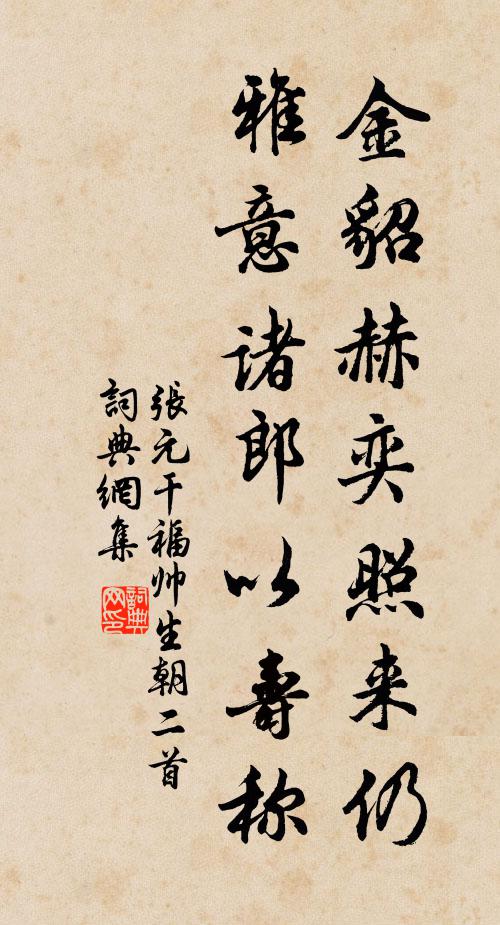 金貂赫奕照来仍
雅意诸郎以寿称
張元干福帅生朝二首
詞典網集
詞典网印